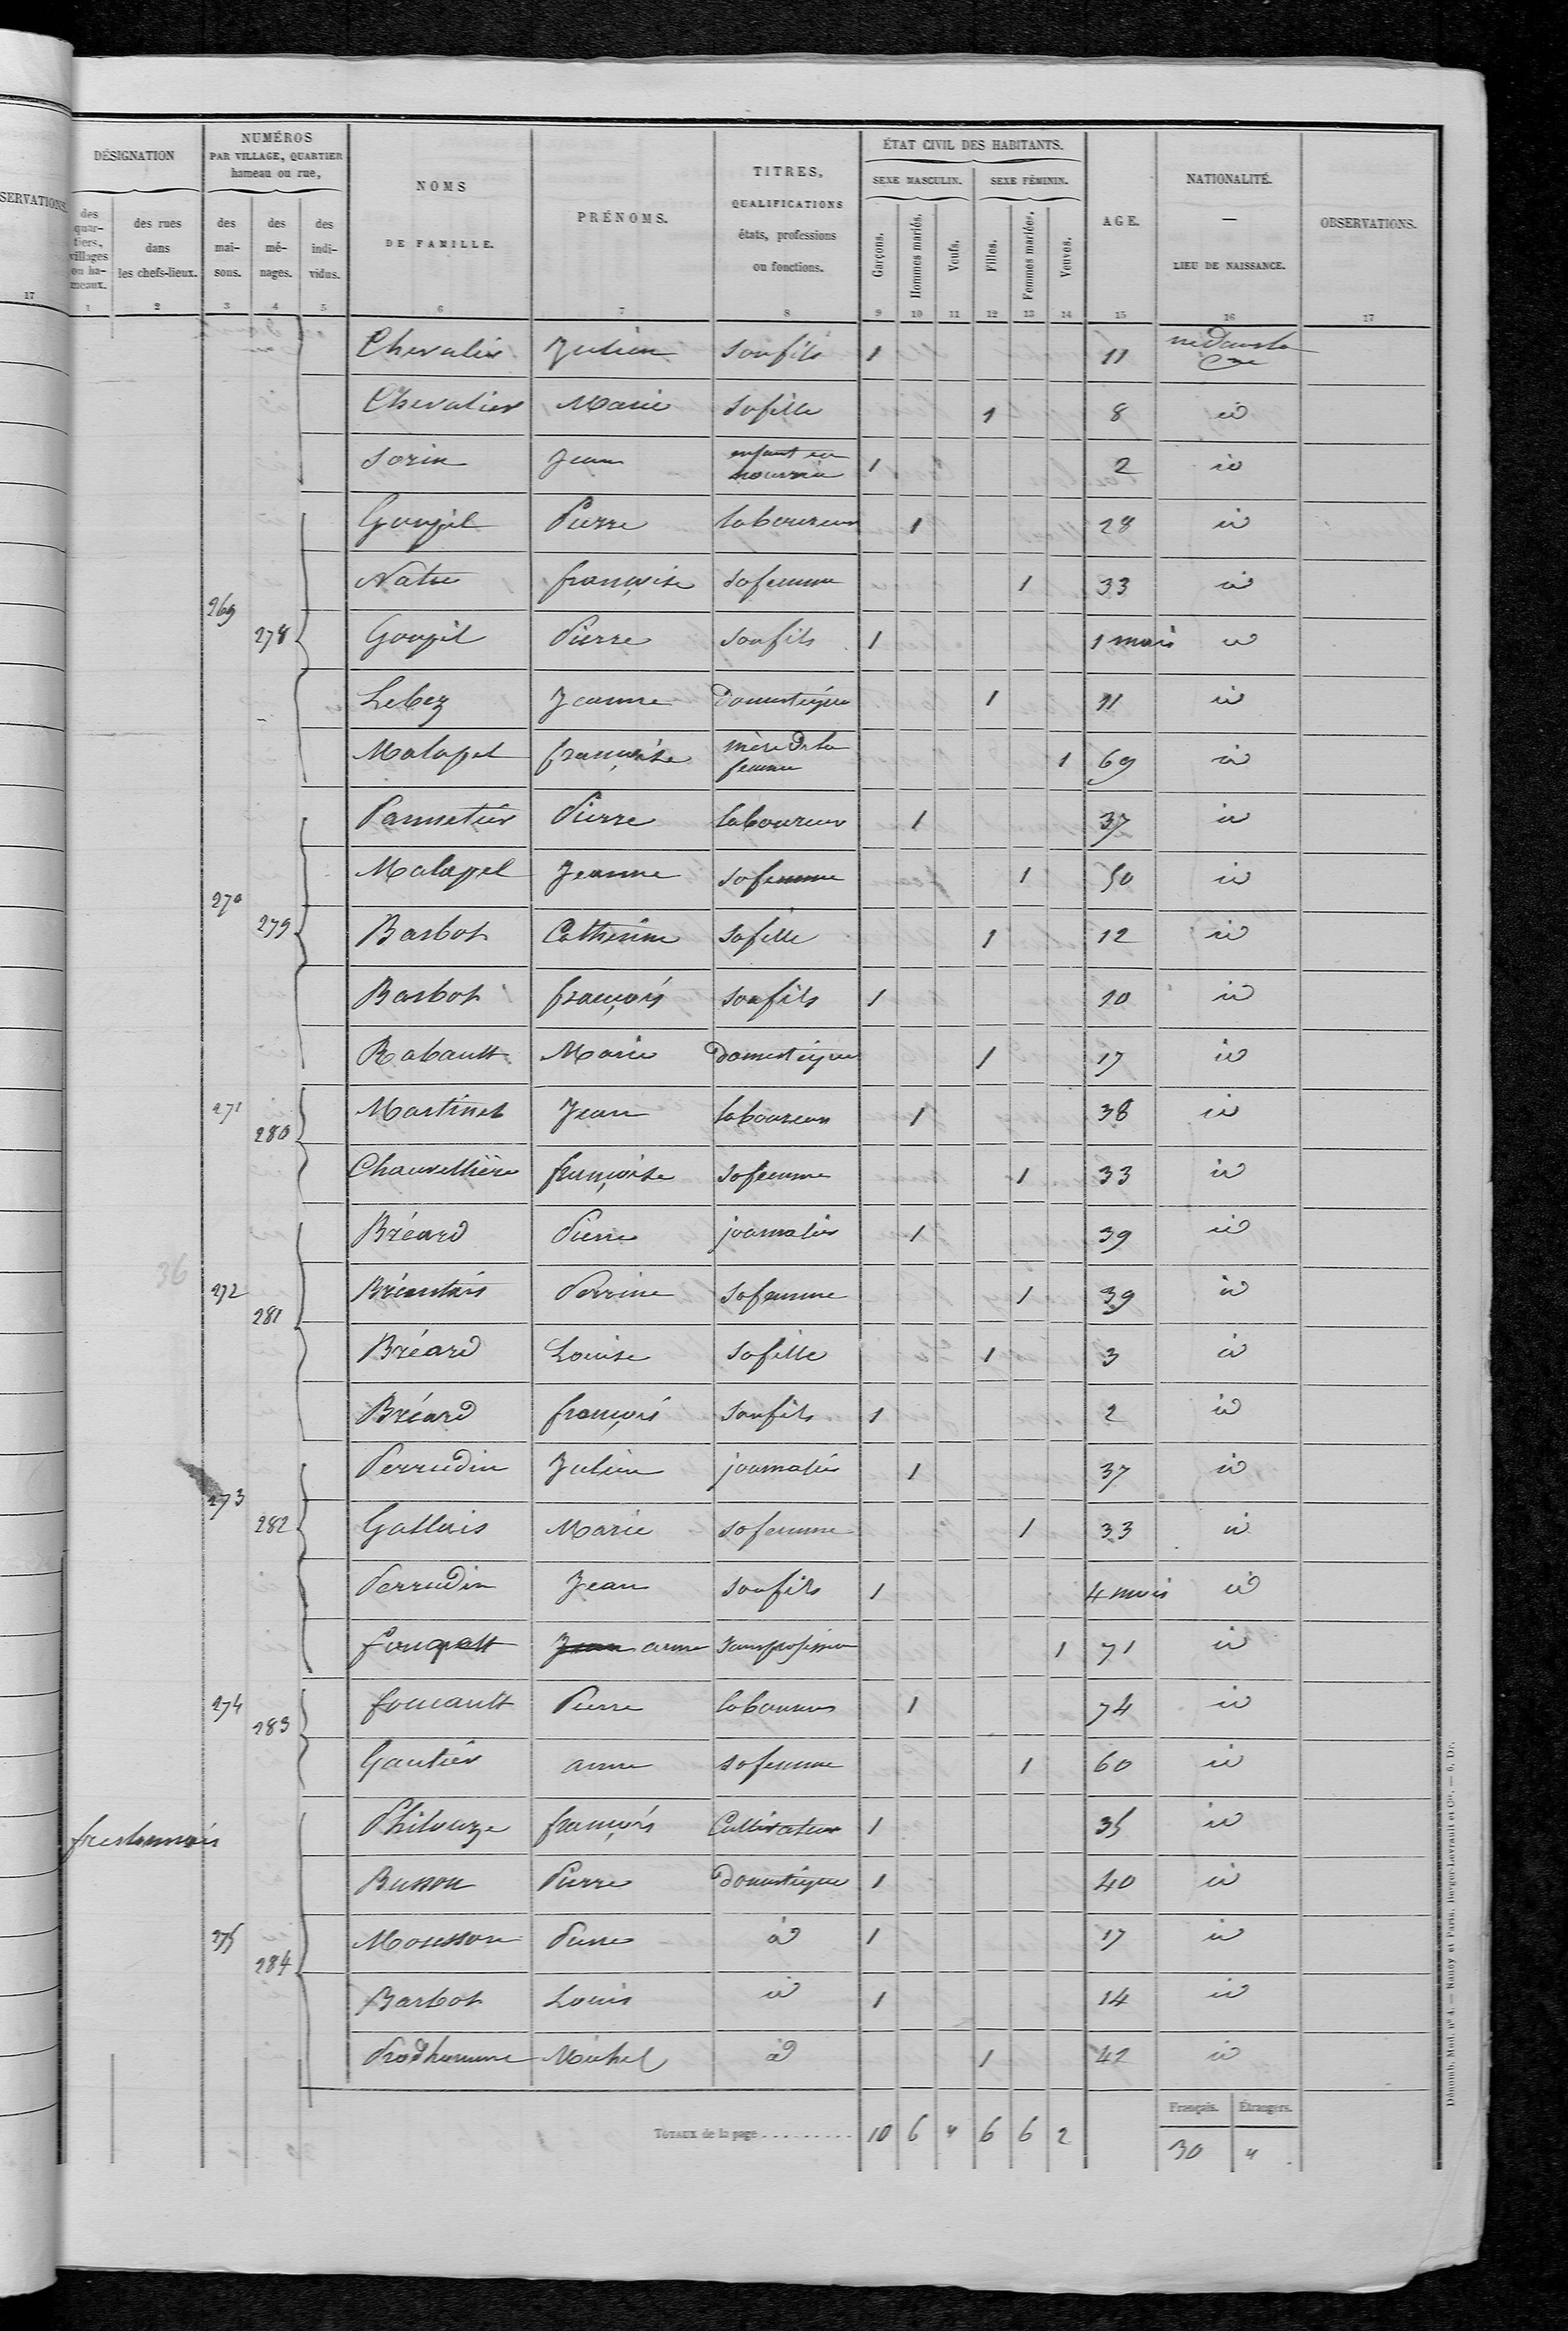 SERVATIONS.
17
DÉSIGNATION
des quartiers, villages ou hameaux.
des rues dans les chefs-lieux.
NUMÉROS
PAR VILLAGE, QUARTIER
hameau ou rue,
des maisons.
des ménages.
des individus.
NOMS
DE FAMILLE.
PRÉNOMS.
TITRES,
QUALIFICATIONS
états, professions
ou fonctions.
ÉTAT CIVIL DES HABITANTS.
SEXE MASCULIN.
SEXE FÉMININ.
Garçons.
Hommes mariés.
Veufs.
Filles.
Femmes mariées.
Veuves.
AGE.
NATIONALITÉ.
—
LIEU DE NAISSANCE.
OBSERVATIONS.
1 2 3 4 5 6 7 8 9 10 11 12 13 14 15 16 17
Chevalier Julien son fils 1 11 né dans la Cne
Chevalier Marie sa fille 1 8 id
Sorin Jean enfant en nourrice 1 2 id
Goupil Pierre laboureur 1 28 id
Natu françoise sa femme 1 33 id
269 278 Goupil Pierre son fils 1 1 mois id
Lebez Jeanne Domestique 1 11 id
Malapel françoise mère de la femme 1 69 id
Pannetier Pierre laboureur 1 37 id
Malapel Jeanne sa femme 1 50 id
270 279 Barbot Catherine sa fille 1 12 id
Barbot françois son fils 1 10 id
Rabault Marie Domestique 1 17 id
271 280 Martinet Jean laboureur 1 38 id
Chauvellière françoise sa femme 1 33 id
Bréard Pierre journalier 1 39 id
36
272 281 Bréantais Perrine sa femme 1 39 id
Bréard Louise sa fille 1 3 id
Bréard françois son fils 1 2 id
Perrudin Julien journalier 1 37 id
273 282 Gallais Marie sa femme 1 33 id
Perrudin Jean son fils 1 4 mois id
Jean anne sans profession 1 71 id
274 283 foucault Pierre laboureur 1 74 id
Gautier anne sa femme 1 60 id
Philouze françois Cultivateur 1 35 id
Busson Pierre Domestique 1 40 id
275 284 Mousson Pierre id 1 17 id
Barbot Louis id 1 14 id
Prodhomme Michel id 1 42 id
TOTAUX de la page 10 6 " 6 6 2
Français. Étrangers.
30 "
Dénomb. Mod. nº 4. — Nancy et Paris, Berger-Levrault et Cie. — 6, Dr.